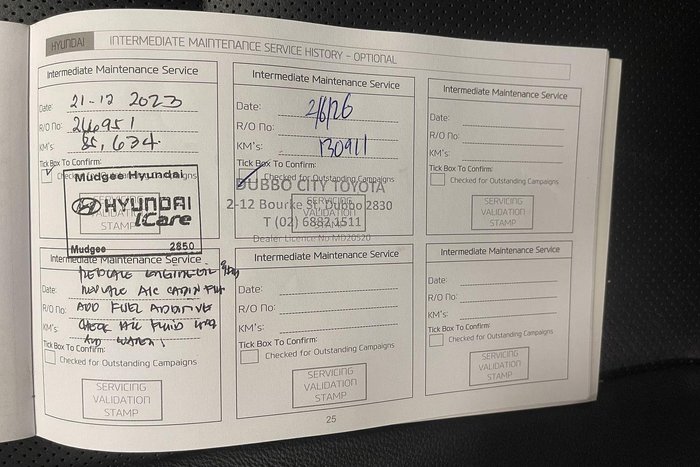 HYUNDAI INTERMEDIATE MAINTENANCE SERVICE HISTORY – OPTIONAL
Intermediate Maintenance Service
Date: 21-12 2023
R/O No: 26951
KM's: 85,634
Tick Box To Confirm:
Mudgee Hyundai
HYUNDAI
iCare
STAMP
Mudgee 2850
Intermediate Maintenance Service
Date: 2/6/26
R/O No:
KM's: 130911
Tick Box To Confirm:
Checked for Outstanding Campaigns
DUBBO CITY TOYOTA
2-12 Bourke St, Dubbo 2830
T (02) 6882 1511
Dealer Licence No MD26520
Intermediate Maintenance Service
Date:
R/O No:
KM's:
Tick Box To Confirm:
Checked for Outstanding Campaigns
SERVICING
VALIDATION
STAMP
Intermediate Maintenance Service
REPLACE ENGINE OIL
Date: REPLACE A/C CABIN
R/O No: ADD FUEL ADDITIVE
KM's: CHECK ALL FLUID
Tick Box To Confirm:
Checked for Outstanding Campaigns
SERVICING
VALIDATION
STAMP
Intermediate Maintenance Service
Date:
R/O No:
KM's:
Tick Box To Confirm:
Checked for Outstanding Campaigns
SERVICING
VALIDATION
STAMP
Intermediate Maintenance Service
Date:
R/O No:
KM's:
Tick Box To Confirm:
Checked for Outstanding Campaigns
SERVICING
VALIDATION
STAMP
25